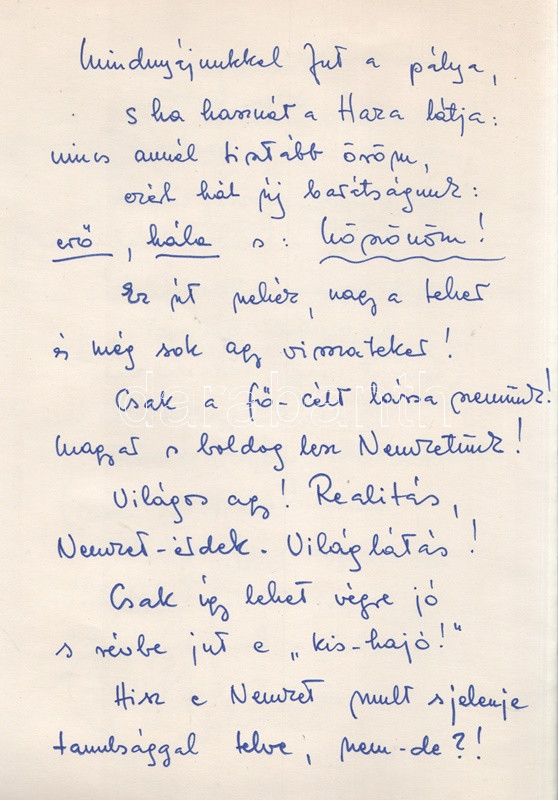 Mindnyájunkkal fut a pálya,
s ha hasznát a Haza látja:
nincs annál tisztább öröm,
ezért hát új barátságunk:
erő, hála s: köszönöm!
Ez út nehéz, nagy a teher
és még sok agy visszateker!
Csak a fő-célt lássa szemünk!
magyar s boldog lesz Nemzetünk!
Világos agy! Realitás,
Nemzet-érdek. Világlátás!
Csak így lehet végre jó
s révbe jut e „kis-hajó!"
Hisz e Nemzet mult s jelenje
tanulsággal telve, nem-de?!
darabanth